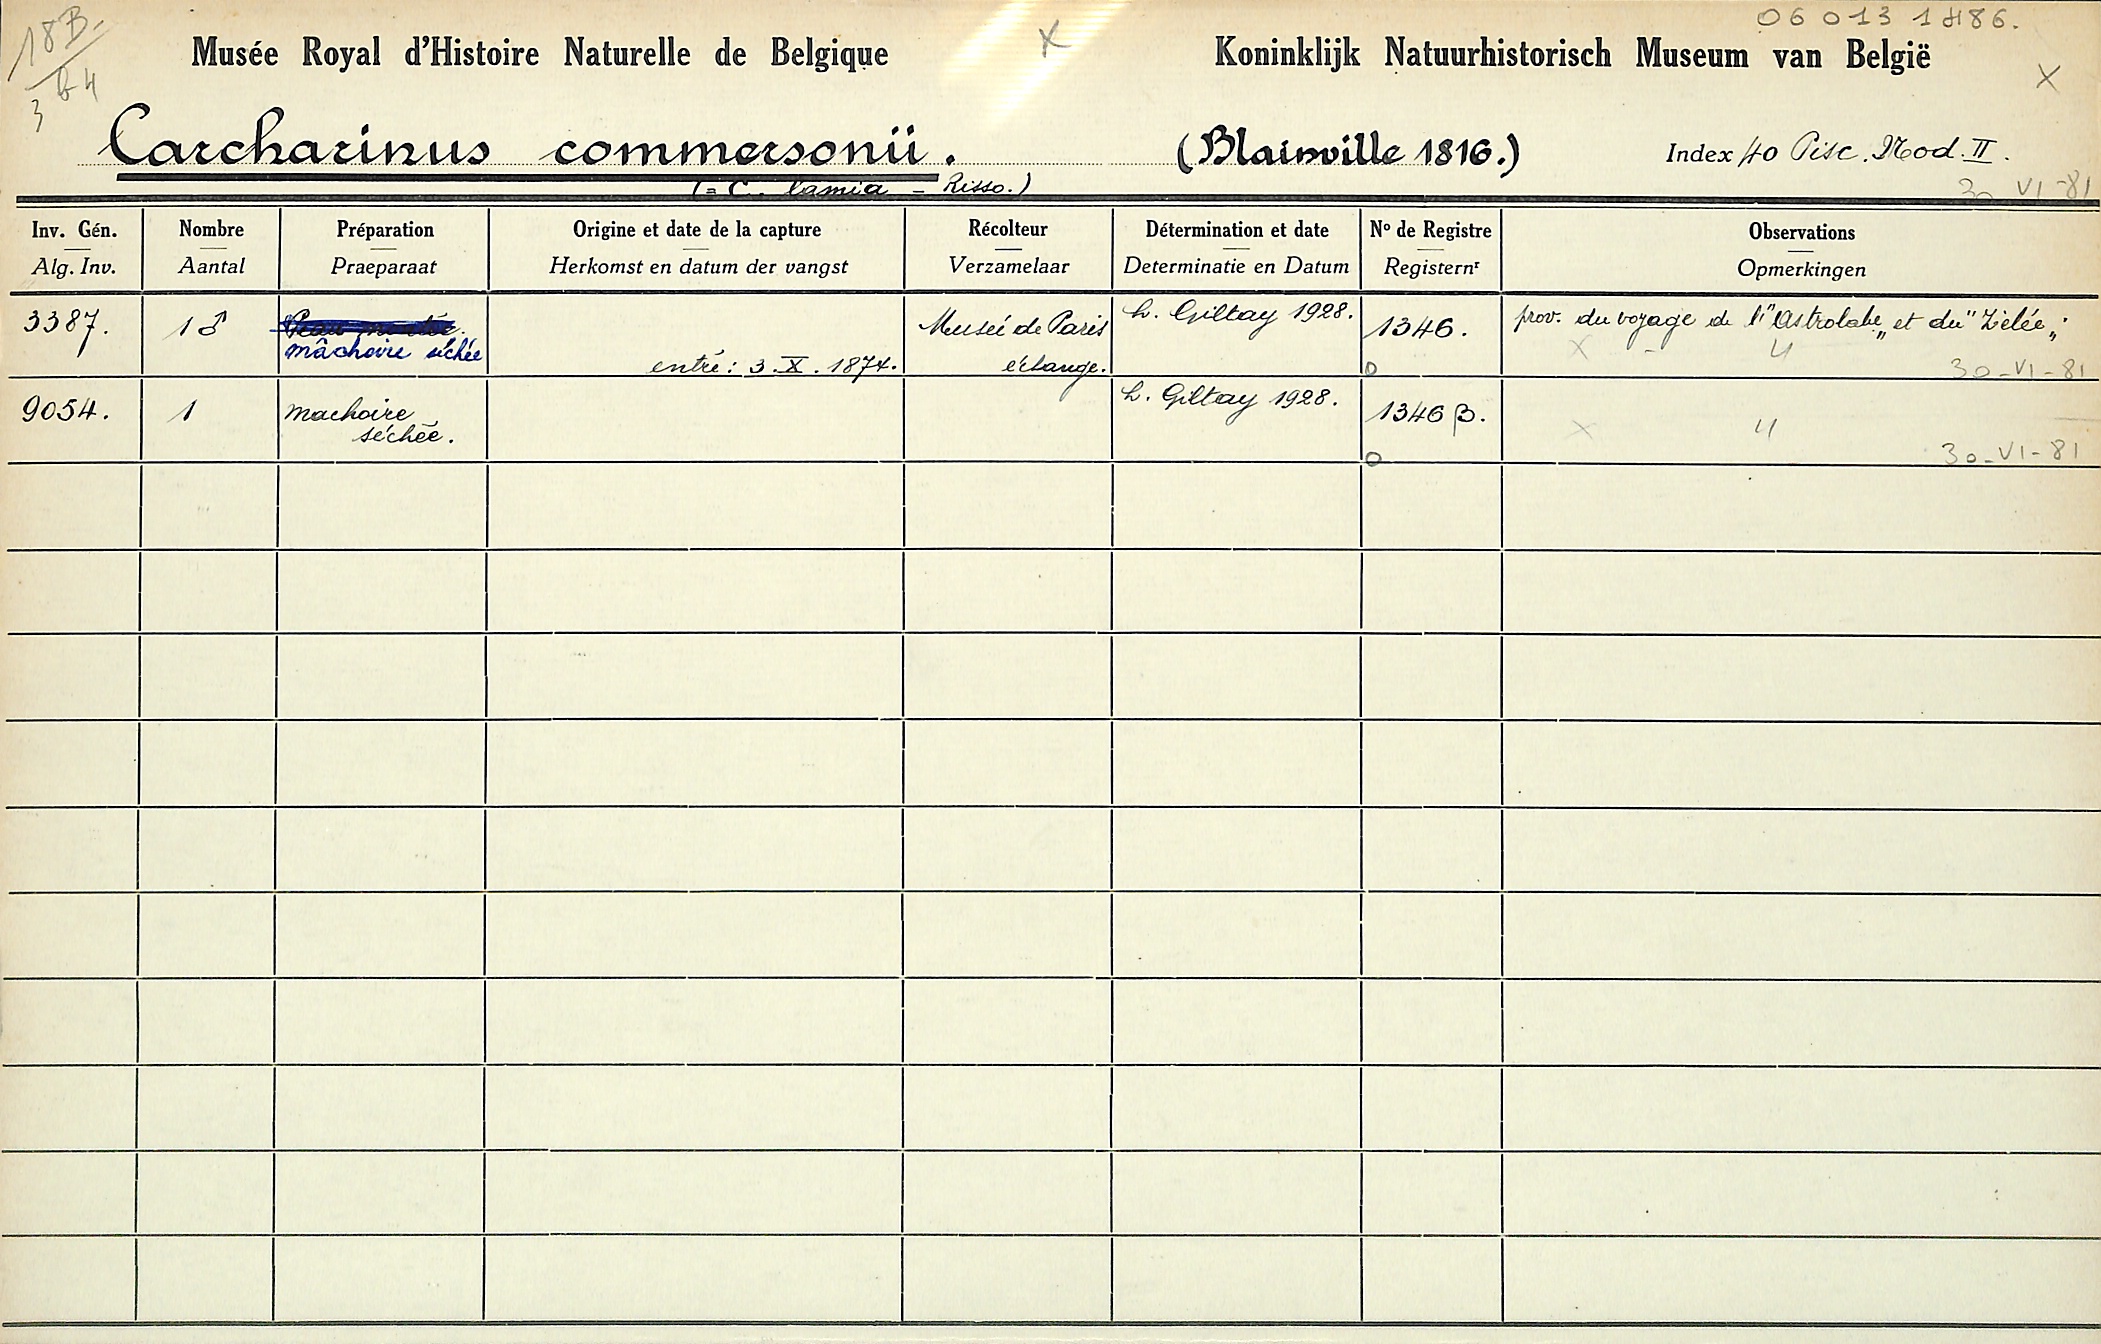 18B- 06 013 1486.
3 b4
Musée Royal d'Histoire Naturelle de Belgique X Koninklijk Natuurhistorisch Museum van België X
Carcharinus commersonii. (Blainville 1816.) Index 40 Pisc. Mod. II.
(= C. lamia - Risso.) 30 VI-81
Inv. Gén. Nombre Préparation Origine et date de la capture Récolteur Détermination et date Nº de Registre Observations
Alg. Inv. Aantal Praeparaat Herkomst en datum der vangst Verzamelaar Determinatie en Datum Registernʳ Opmerkingen
3387. 1♂ Peau montée. Musée de Paris L. Giltay 1928. 1346. prov. du voyage de l'"Astrolabe„ et du "Zélée„.
mâchoire séchée entré: 3.X.1874. échange. o X - 4 30-VI-81
9054. 1 machoire L. Giltay 1928. 1346 β.
séchée. o X 4 30-VI-81